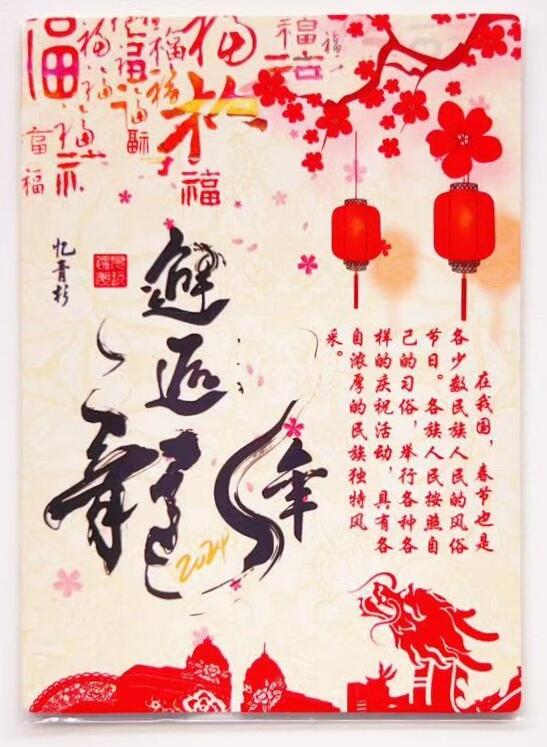 福 福 福 福 福 福
福
福
福
在我国，春节也是
各少数民族人民的风俗
节日。各族人民按照自
己的习俗，举行各种各
样的庆祝活动，具有各
自浓厚的民族独特风
采。
邂逅
龍年
2024
忆青杉